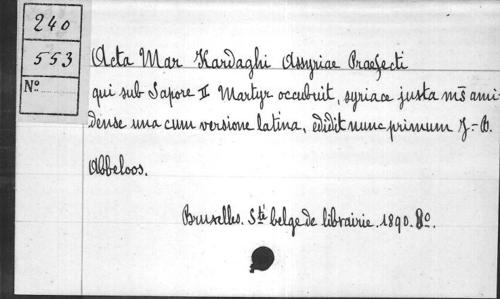 240
553
No
Acta Mar Kardaghi Assyriae Praefecti
qui sub Sapore II Martyr occubuit, syriace justa m̄s ami-
dense una cum versione latina, edidit nunc primum J.-B.
Abbeloos.
Bruxelles. Sté belge de librairie. 1890. 8o.